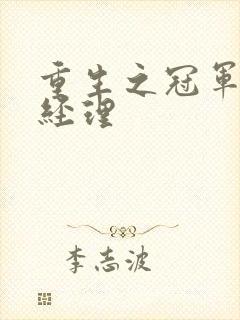 重生之冠軍
經理
李志波